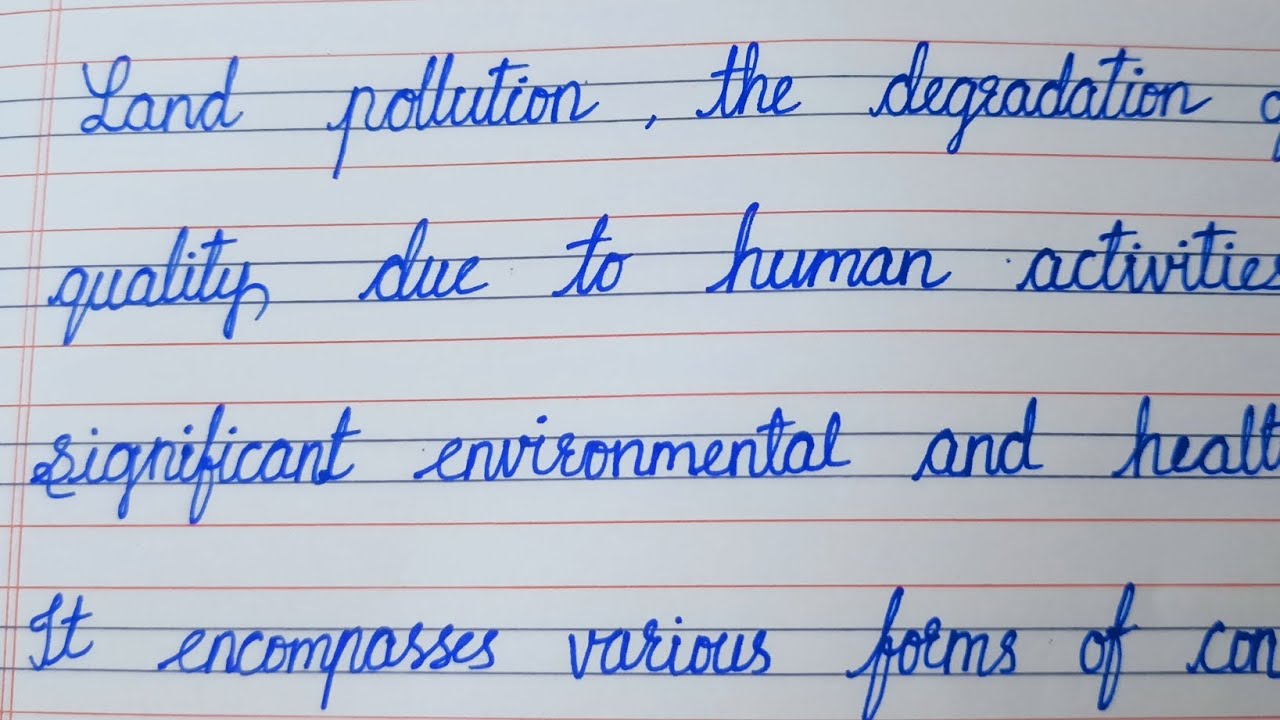 Land pollution, the degradation
quality, due to human activities
significant environmental and healt
It encompasses various forms of con